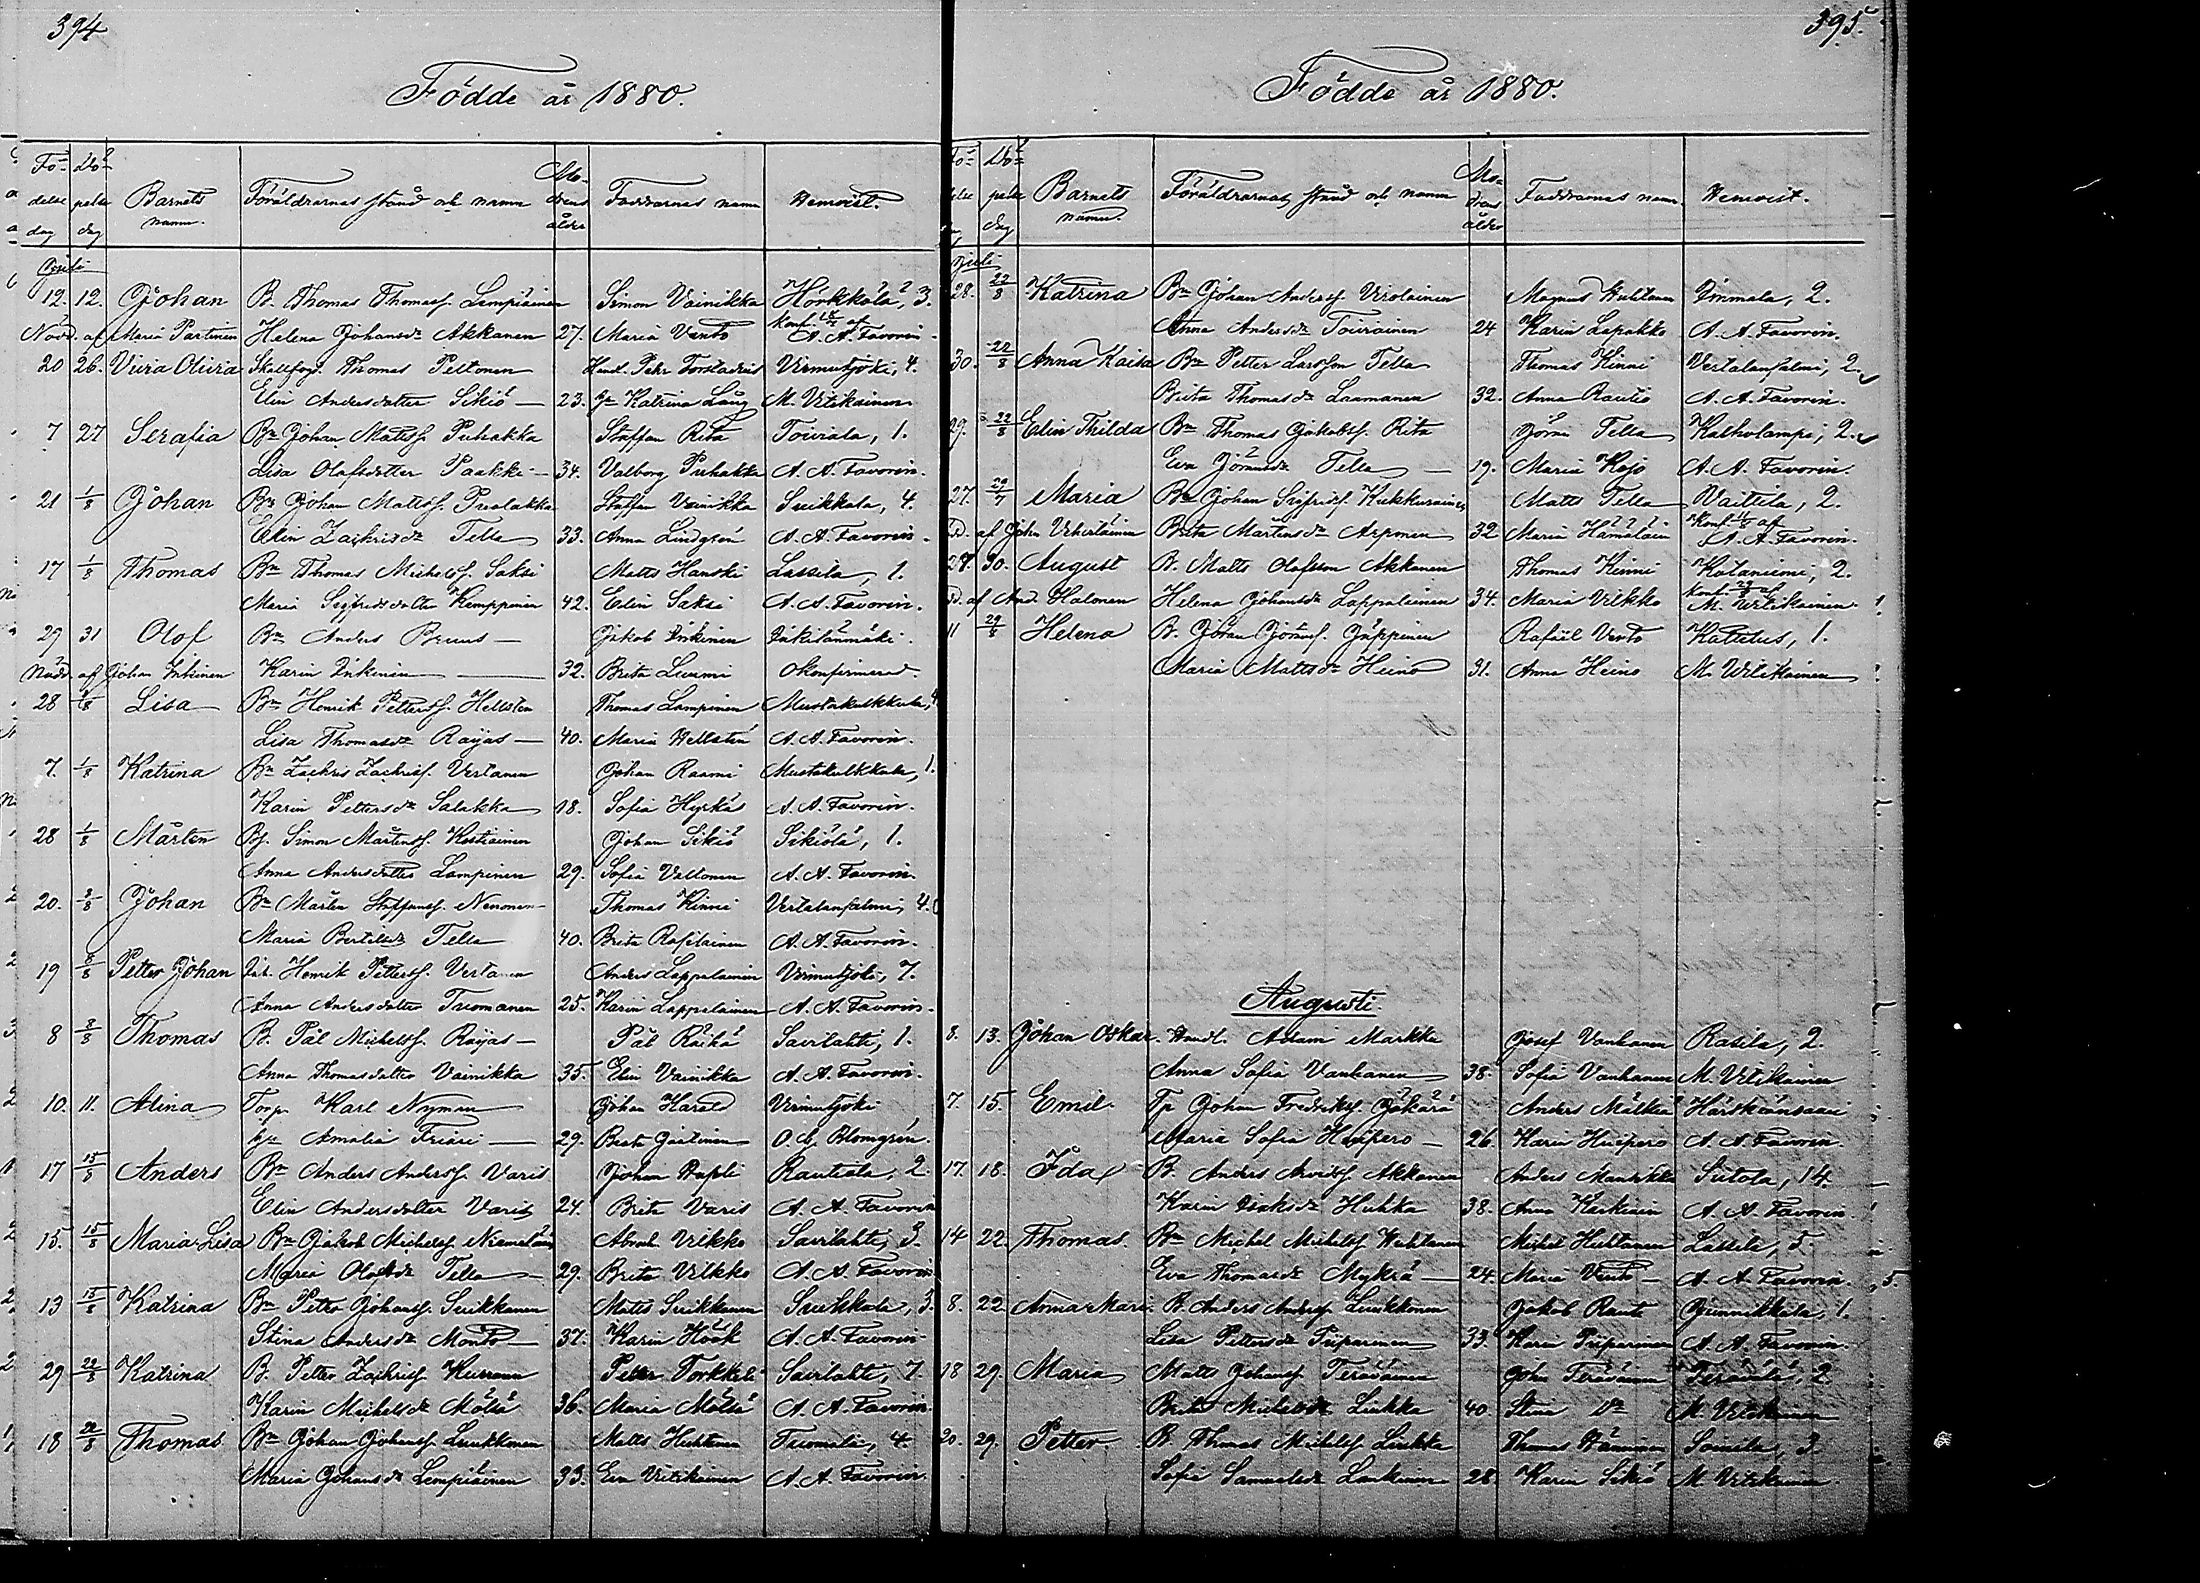 394
Födde år 1880.
Födelse dag Döpelse dag Barnets namn. Föräldrarnas stånd och namn Modrens ålder Faddrarnas namn Hemvist.
Juli
12. 12. Johan B. Thomas Thomasf. Lempiäinen Simon Vainikka Honkkala, 3.
Nöd. af Maria Partinen Helena Johansdr Akkanen 27. Maria Vento Konf. af A. A. Favorin
20 26. Viira Olivia Thomas Peltonen Virmutjoki, 4.
Elin Andersdotter Sikiö 23. Katrina Lång M. Vitikainen
7 27 Serafia Bn Johan Mattsf. Puhakka Staffan Rita Toiviala, 1.
Lisa Olofsdotter Paakki 34. Valborg Puhakka A. A. Favorin.
21 1/8 Johan Bn Johan Mattsf. Staffan Vainikka Suikkala, 4.
Elin Zachrisdr Tella 33. Anna Lindgrén A. A. Favorin.
17 1/8 Thomas Bn Thomas Michelsf. Saksi Matts Hanski Lassila, 1.
Maria Sigfridsdotter Kemppinen 42. Elin Saksi A. A. Favorin.
29 31 Olof Bn Anders Bruus Jakob Inkinen Inkilänmäki.
Nöd. af Johan Inkinen Karin Inkinen 32. Brita Lummi Okonfirmerad.
28 1/8 Lisa Bn Henrik Pettersf. Hellsten Thomas Lampinen Mustakulkkula, 4
Lisa Thomasdr Raijas 40. Maria Hellstén A. A. Favorin.
7. 1/8 Katrina Bn Zachris Zachrisf. Vertanen Johan Raami Mustakulkkula, 1.
Karin Pettersdr Salakka 18. Sofia Hyrkäs A. A. Favorin.
28 1/8 Mårten Simon Mårtensf. Kostiainen Johan Sikiö Sikiölä, 1.
Anna Andersdotter Lampinen 29. Sofia Valtonen A. A. Favorin.
20. 3/8 Johan Bn Mårten Staffansf. Nenonen Thomas Kinni Vertalansalmi, 4.
Maria Bertilsdr Tella 40. Brita A. A. Favorin.
19 8/8 Petter Johan Inh. Henrik Pettersf. Vertanen Anders Lappalainen Virmutjoki, 7.
Anna Andersdotter Tuomanen 25. Karin Lappalainen A. A. Favorin.
8 8/8 Thomas B. Pål Michelsf. Raijas Pål Räihä Savilahti, 1.
Anna Thomasdotter Vainikka 35. Elin Vainikka A. A. Favorin.
10. 11. Alina Torp. Karl Nyman Johan Harald Virmutjoki
Amalia Friari 29. Brita Jantinen O. A. Blomgrén.
17 15/8 Anders Bn Anders Andersf. Varis Johan Hapli Rautiala, 2.
Elin Andersdotter Varis 24. Brita Varis A. A. Favorin
15. 15/8 Maria Lisa Bn Jakob Michelsf. Abrah. Vilkko Savilahti, 3.
Maria Olofsdr Tella 29. Brita Vilkko A. A. Favorin
13 15/8 Katrina Bn Petter Johansf. Suikkanen Matts Suikkanen Suikkala, 3.
Stina Andersdr Monto 37. Karin Höök A. A. Favorin
29 22/8 Katrina B. Petter Zachrisf. Kurronen Petter Torkkeli Savilahti, 7
Karin Michelsdr Mölsä 36. Maria Mölsä A. A. Favorin
18 22/8 Thomas Bn Johan Johansf. Luukkonen Matts Huhtanen Tuomala, 4.
Maria Johansdr Lempiäinen 33. Eva Vitikainen A. A. Favorin.
395.
Födde år 1880.
Döpelse dag Barnets namn. Föräldrarnas stånd och namn Modrens ålder Faddrarnas namn. Hemvist.
Juli
28. 22/8 Katrina Bn Johan Andersf. Virolainen Magnus Huhtanen Immala, 2.
Anna Andersdr Toivainen 24 Karin Lapakko A. A. Favorin.
30. 22/8 Anna Kaisa Bn Petter Larsson Tella Thomas Kinni Vertalansalmi, 2.
Brita Thomasdr Laamanen 32. Anna Rautio A. A. Favorin.
29. 22/8 Elin Thilda Bn Thomas Jakobsf. Rita Jöran Tella Kalholampi, 2.
Eva Jöransdr Tella 19. Maria Kojo A. A. Favorin.
27. 29/7 Maria Bn Johan Sigfridsf. Kukkurainen Matts Tella Vaittila, 2.
Nd. af Johan Brita Mårtensdr Arponen 32 Maria Hämäläin Konf. af A. A. Favorin.
28. 30. August B. Matts Olofsson Akkanen Thomas Kinni Kotaniemi, 2.
Nd. af And. Halonen Helena Johansdr Lappalainen 34. Maria Vilkko Konf. af M. Vitikainen.
11 29/8 Helena B. Johan Jöransf. Jäppinen Rafael Vento Kattelus, 1.
Maria Mattsdr Heino 31. Anna Heino M. Vitikainen
Augusti.
8. 13. Johan Oskar. Handl. Adam Markka Josef Vanhanen Rasila, 2.
Anna Sofia Vanhanen 38. Sofia Vanhanen M. Vitikainen
7. 15. Emil Tp Johan Fredriksf. Jäkärä Anders Mälkiä Härskiänsaari
Maria Sofia Huipero 26. Karin Huipero A. A. Favorin.
17. 18. Ida B. Anders Arvidsf. Akkanen Anders Mantikka Sutola, 14.
Karin Isaksdr Huhka 38. Anna Kärkiäin A. A. Favorin.
14 22. Thomas. Bn Michel Michelsf. Huhtanen Michel Huhtanen Lassila, 5.
Eva Thomasdr Mykrä 24. Maria Vento A. A. Favorin.
8. 22 Anna Mari. B. Anders Andersf. Luukkonen Jakob Rautio Junnikkala, 1.
Lisa Pettersdr Piiparinen 33 Karin Piiparinen A. A. Favorin.
18 29. Maria Matts Johansf. Teräväinen Johan Teräväinen Terävälä, 2
Brita Michelsdr Liukka 40 Stina Dr M. Vitikainen
20. 29. Petter. B. Thomas Michelsf. Liukka Thomas Hänninen Soinila, 3.
Sofia Samuelsdr Laukiain 28. Karin Sikiö M. Vitikainen.